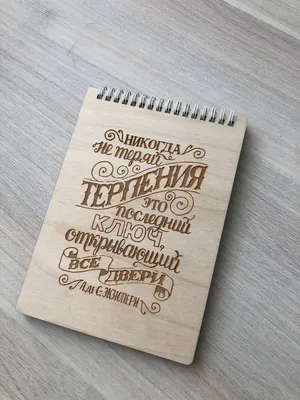 НИКОГДА
не теряй
ТЕРПЕНИЯ
ЭТО
последний
КЛЮЧ,
открывающий
ВСЕ ДВЕРИ
А. де С.-ЭКЗЮПЕРИ